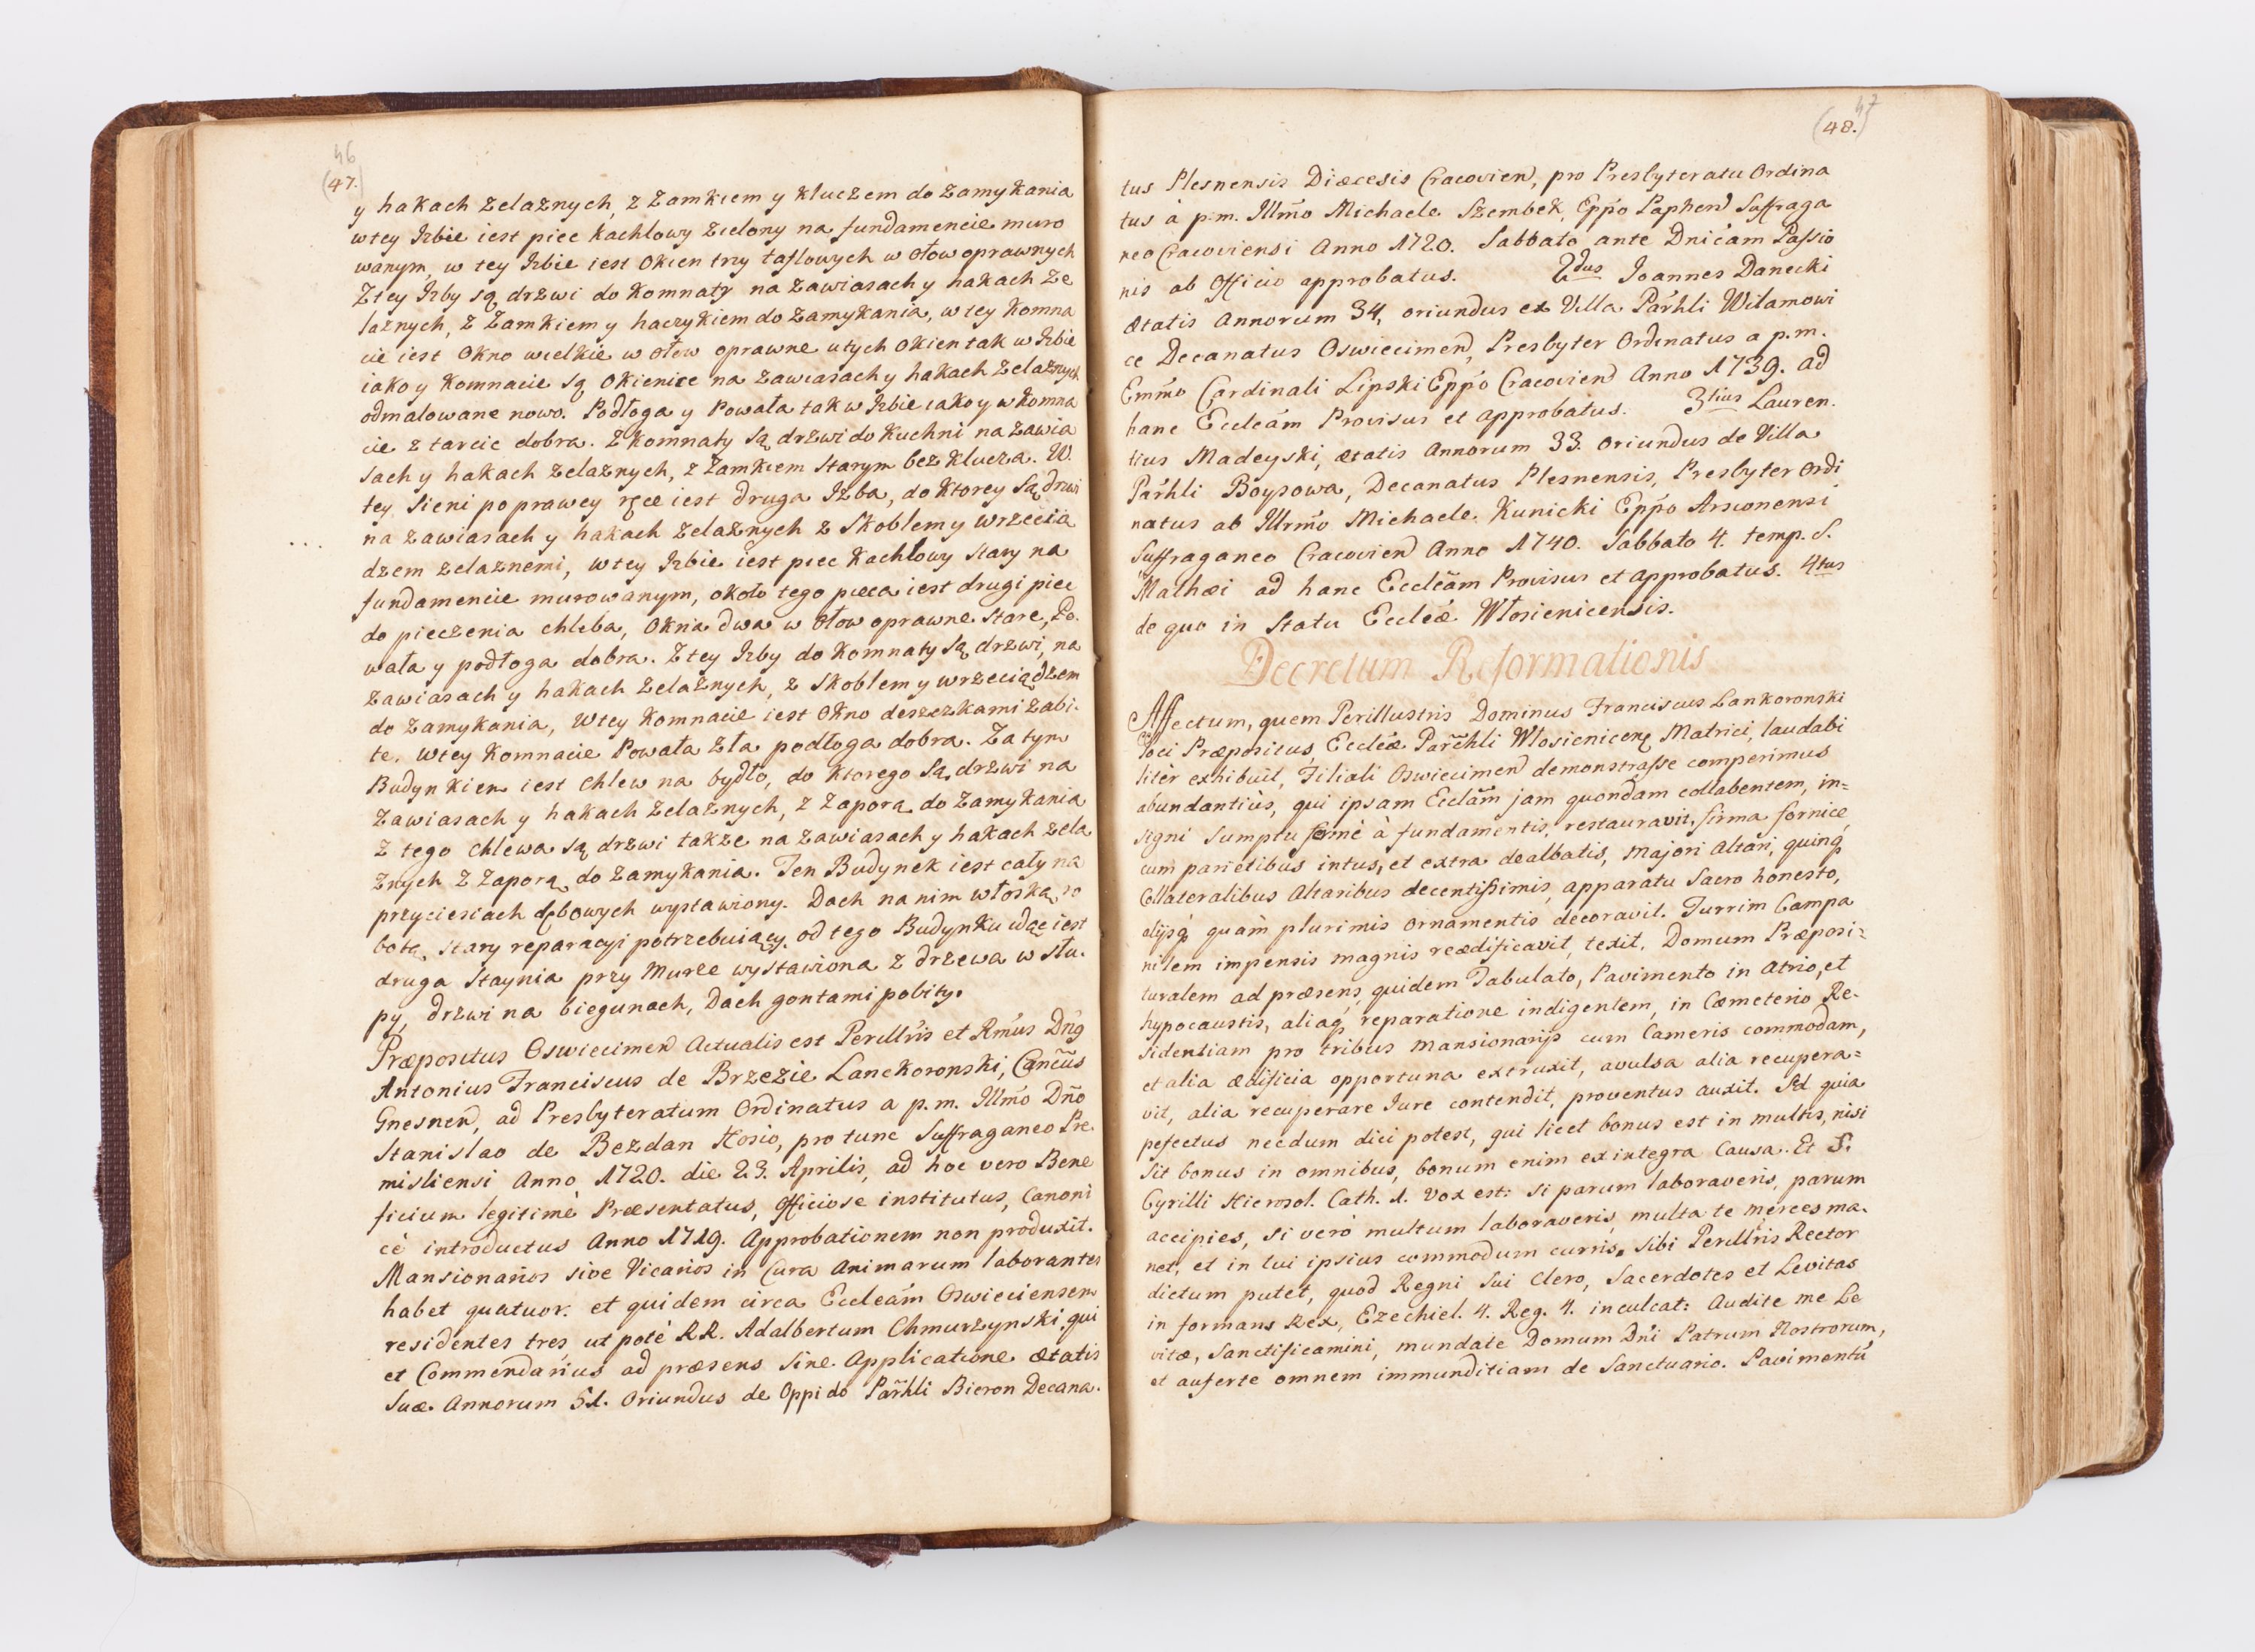 46
(47.)
y hakach zelaznych, z Zamkiem y kluczem do zamykania
wtey Izbie iest piec kachlowy zielony na fundamencie muro
wanym, w tey Izbie iest Okien trzy taflowych w ołow oprawnych
Ztey Izby są drzwi do Komnaty na zawiasach y hakach Ze
laznych, z Zamkiem y haczykiem do zamykania, w tey Komna
cie iest Okno wielkie w ołow oprawne utych Okien tak w Izbie
iako y Komnacie są Okienice na zawiasach y hakach zelaznych
odmalowane nowo. Podłoga y Powała tak w Izbie iako y w Komna
cie z tarcic dobra. Z Komnaty są drzwi do Kuchni na zawia
sach y hakach zelaznych, z Zamkiem starym bez klucza. W.
tey Sieni po prawey ręce iest druga Izba, do Ktorey są drzwi
na zawiasach y hakach zelaznych z Skoblem y wrzecią
dzem zelaznemi, wtey Izbie iest piec Kachlowy stary na
fundamencie murowanym, około tego pieca iest drugi piec
do pieczenia chleba, Okna dwa w ołow oprawne stare, Po.
wała y podłoga dobra. Ztey Izby do Komnaty są drzwi, na
zawiasach y hakach zelaznych, z Skoblem y wrzeciądzem
do zamykania, Wtey Komnacie iest Okno deszczkami zabi.
te. Wtey Komnacie Powała zła podłoga dobra. Za tym
Budynkiem iest chlew na bydło, do Ktorego są drzwi na
zawiasach y hakach zelaznych, z Zaporą do zamykania
Z tego chlewa są drzwi takze na zawiasach y hakach zela
znych z zaporą do zamykania. Ten Budynek iest cały na
przyciesiach dębowych wystawiony. Dach na nim włoską ro
botą, stary reparacyi potrzebuiący. od tego Budynku idąc iest
druga Staynia przy Murze wystawiona z drzewa w słu.
py, drzwi na biegunach, Dach gontami pobity.
Præpositus Oswiecimen̄ Actualis est Perillr̃is et Rm̃us Dn̄g
Antonius Franciscus de Brzezie Lanckoronski, Canc̃us
Gnesnen̄, ad Presbyteratum Ordinatus a p.m. Illm̃o Dn̄o
Stanislao de Bezdan Hosio, pro tunc Suffraganeo Pre.
misliensi Anno 1720. die 23. Aprilis, ad hoc vero Bene
ficium legitimè Præsentatus, Officiose institutus, Canoni
cè introductus Anno 1719. Approbationem non produxit.
Mansionarios sive Vicarios in Cura Animarum laborantes
habet quatuor. et quidem circa Eccleām Oswieciensem
residentes tres, ut potè RR. Adalbertum Chmurzynski, qui
et Commendarius ad præsens sine Applicatione ætatis
suæ Annorum 51. Oriundus de Oppido Par̃hli Bieron Decana.
47
(48.)
tus Plesnensis Diæcesis Cracovien̄, pro Presbyteratu Ordina
tus à p.m. Illm̃o Michaele Szembek, Epp̃o Paphen̄ Suffraga
neo Cracoviensi Anno 1720. Sabbato ante Dnicam Passio
nis ab Officio approbatus. 2dus Joannes Danecki
Ætatis Annorum 34, oriundus ex Villa Par̃hli Wilamowi
ce Decanatus Oswiecimen̄, Presbyter Ordinatus a p.m.
Emm̃o Cardinali Lipski Epp̃o Cracovien̄ Anno 1739. ad
hanc Eccleām Provisus et approbatus. 3tius Lauren.
tius Madeyski, ætatis Annorum 33. oriundus de Villa
Par̃hli Boysowa, Decanatus Plesnensis, Presbyter Ordi
natus ab Illrm̃o Michaele Kunicki Epp̃o Arsionensi
Suffraganeo Cracovien̄ Anno 1740. Sabbato 4. temp. S.
Mathæi ad hanc Eccleām Provisus et approbatus. 4tus
de quo in Statu Eccleæ Włosienicensis.
Decretum Reformationis
Affectum, quem Perillustris Dominus Franciscus Lankoronski
loci Præpositus, Eccleæ Par̃chli Włosienicen̄ Matrici, laudabi
liter exhibuit, Filiali Oswiecimen̄ demonstrasse comperimus
abundantiùs, qui ipsam Ecclãm jam quondam collabentem, in=
signi sumptu ferè à fundamentis, restauravit, firma fornice
cum parietibus intus, et extra dealbatis, Majori Altari, quinq̃
Collateralibus Altaribus decentissimis, apparatu sacro honesto,
alijsq̃ quàm plurimis ornamentis decoravit. Turrim Campa
nilem impensis magnis reædificavit, texit, Domum Præposi=
turalem ad præsens, quidem Tabulato, Pavimento in Atrio, et
hypocaustis, aliaq̃ reparatione indigentem, in Cæmeterio Re-
sidentiam pro tribus Mansionarijs cum Cameris commodam,
et alia ædificia opportuna extruxit, avulsa alia recupera=
vit, alia recuperare Jure contendit, proventus auxit. Sed quia
pefectus necdum dici potest, qui licet bonus est in multis, nisi
sit bonus in omnibus, bonum enim ex integra Causa. Et S.
Cyrilli Hierosol. Cath. 1. vox est: Si parum laboraveris, parum
accipies, si verò multum laboraveris, multa te merces ma.
net, et in tui ipsius commodum curris. Sibi Perillr̃is Rector
dictum putet, quod Regni sui Clero, Sacerdotes et Levitas
informans Rex, Ezechiel. 4. Reg. 4. inculcat: Audite me Le
vitæ, Sanctificamini, mundate Domum Dn̄i Patrum Nostrorum,
et auferte omnem immunditiam de Sanctuario. Pavimentū